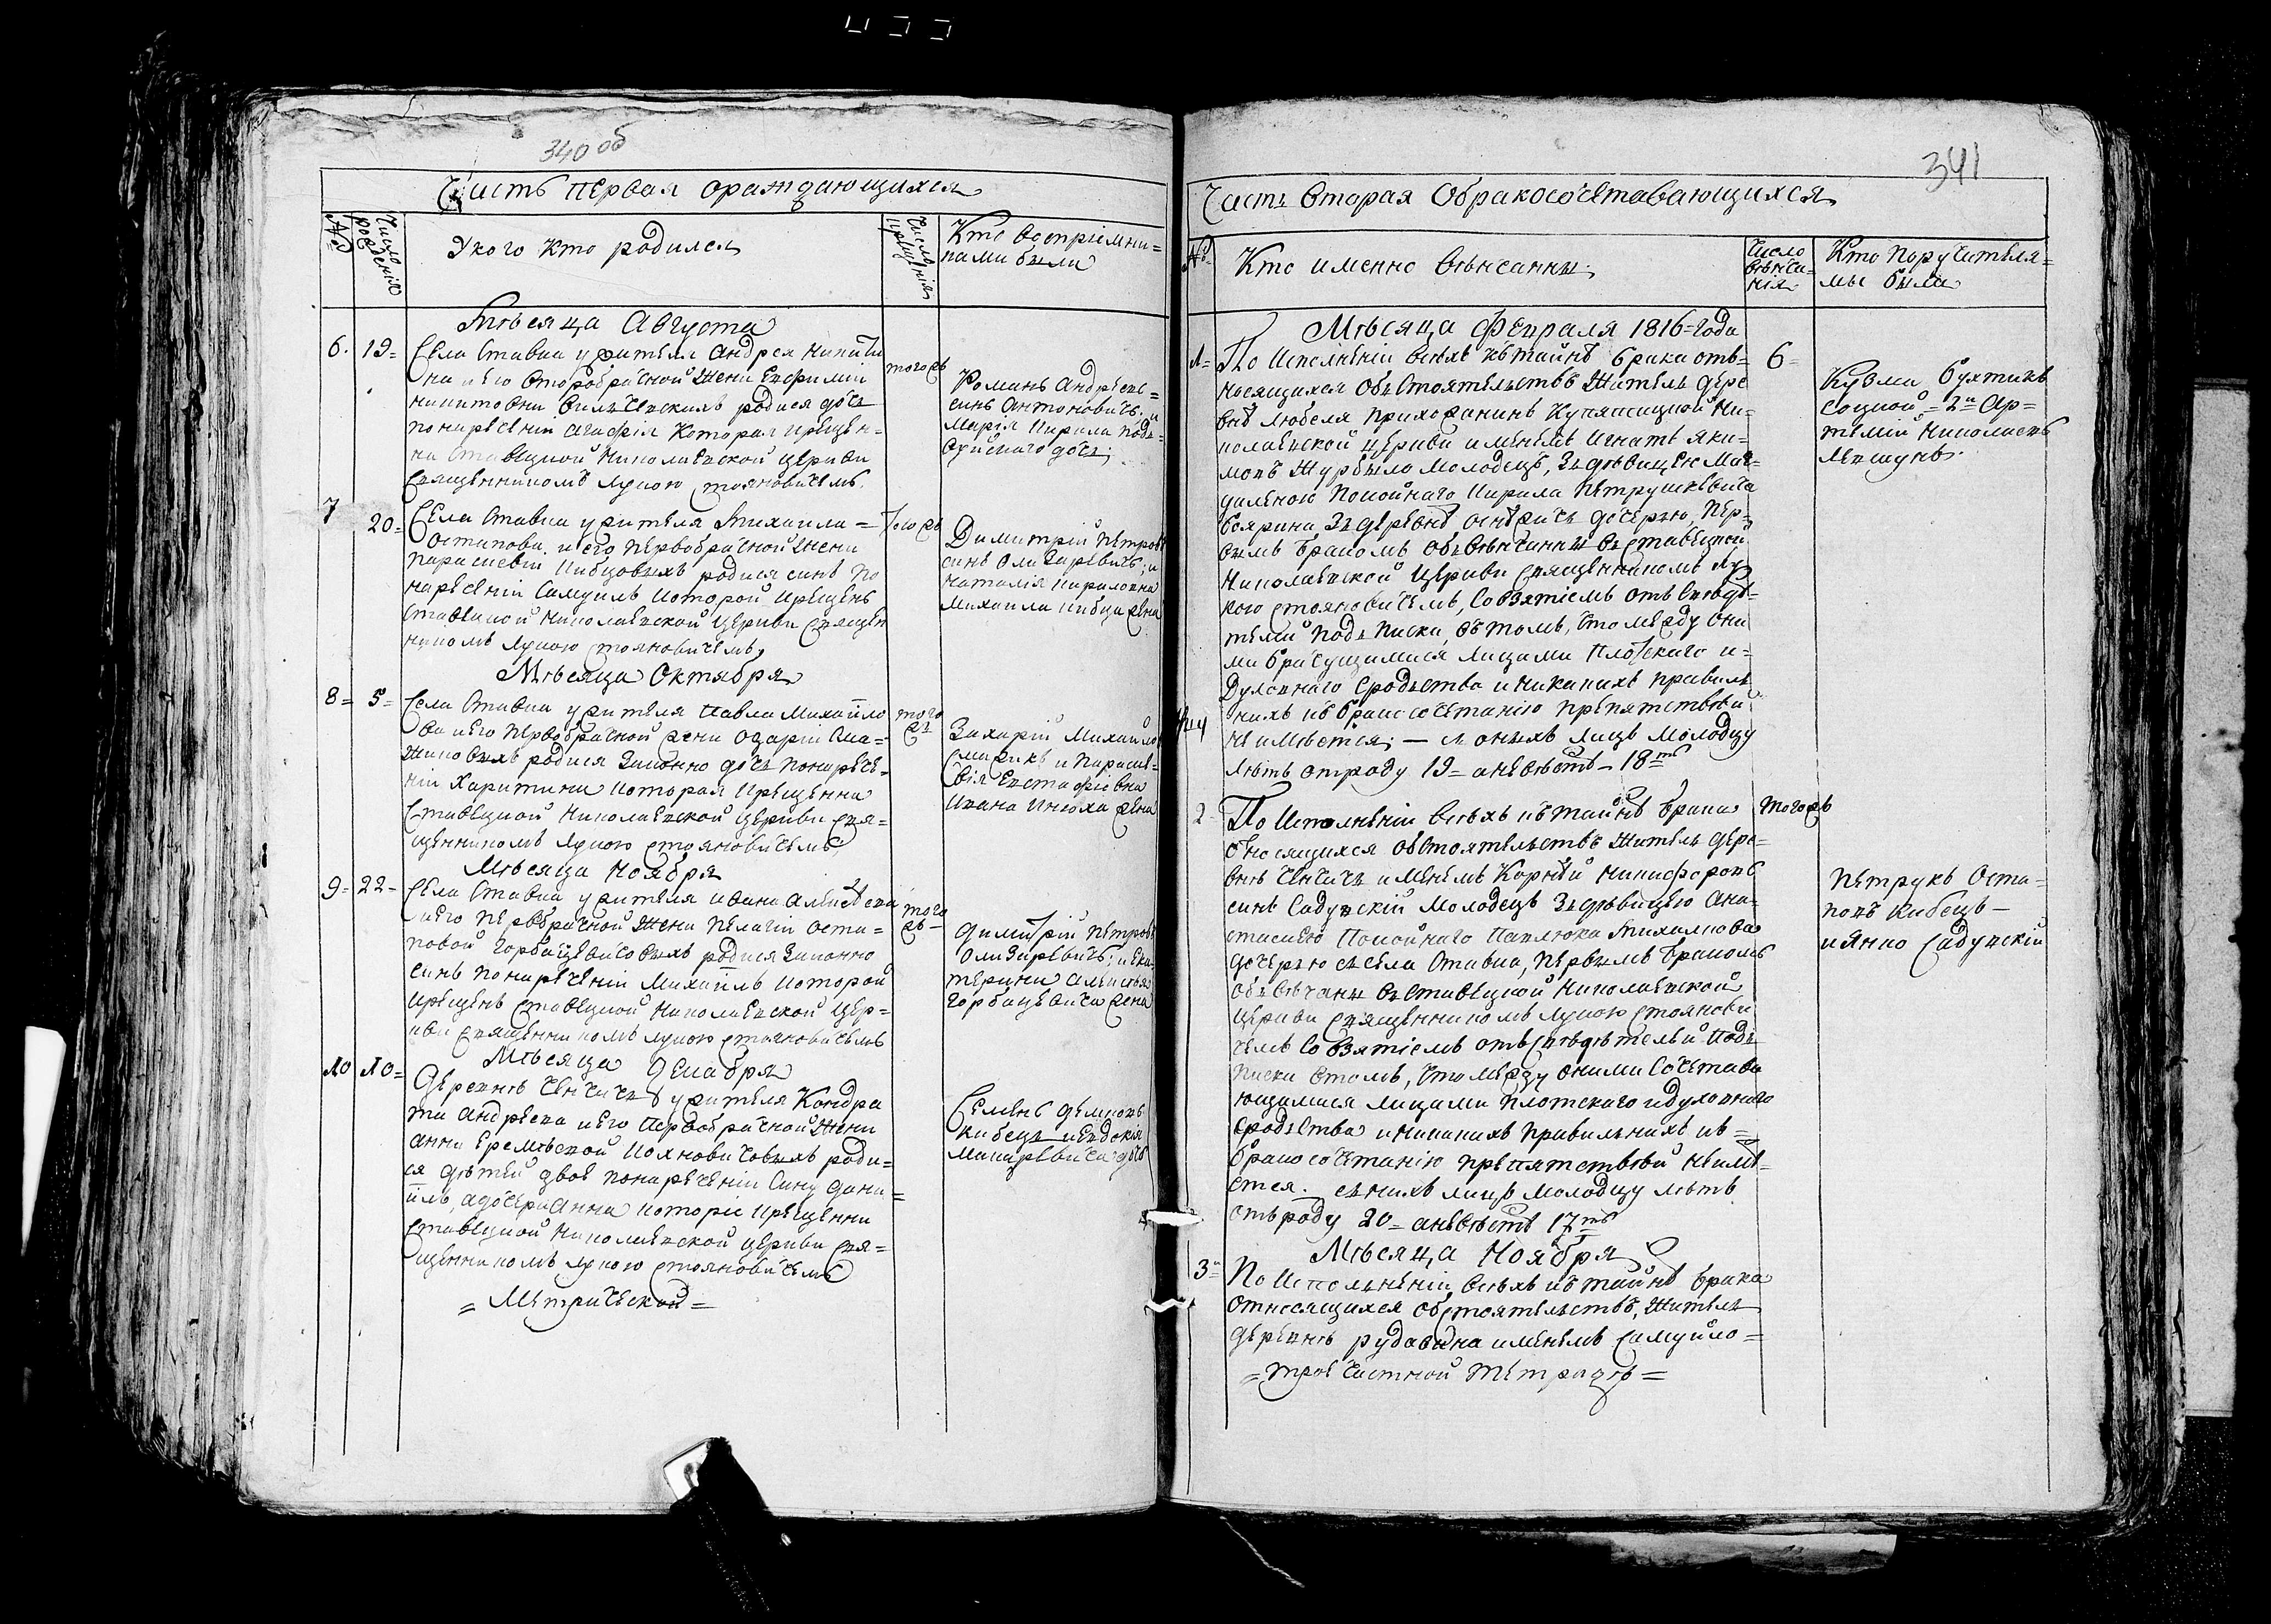 340 об
Часть первая ораждающихся
№
Число рожденія
У кого кто родился
Число крещенія
Кто воспріемни=
ками были
Мѣсяца Августа
6. 19= Села Ставка у жителя Андрея Никити
на и его второбрачной жени Евфиміи
Никитовни родися дочь
по наречении Агафія которая крещен=
на Ставецкой Николаевской церкви
священникомъ Лукою Стояновичемъ.
тогожъ
Романъ Андреев=
синъ Антоновичъ. и
Марія Кирила
дочь;
7 20= Села Ставка у жителя Михаила=
Остапова и его первобрачной жени
Параскевіи Кибцовыхъ родися синъ по
наречении Самуилъ которой крещенъ
Ставецкой Николаевской церкви священ
никомъ Лукою Стояновичемъ,
Тогожъ
Димитрій Петровъ
синъ Олизаревичъ; и
Наталія Кириловна
Михаила Кибца жена
Мѣсяца Октября
8= 5= Села Ставка у жителя Павла Михайло
ва и его первобрачной жени
родися законно дочь по нарече=
ніи Харитина которая крещенна
Ставецкой Николаевской церкви свя=
щенникомъ Лукою Стояновичемъ,
того
жъ
Захарій Михайло
и Параске=
вія Евстафіевна
Ивана жена
Мѣсяца Ноября
9= 22= Села Ставка у жителя Ивана Алексеева
и его первобрачной жени Пелагіи Оста=
повой Горбацевичовыхъ родися законно
синъ по наречении Михаилъ которой
крещенъ Ставецкой Николаевской цер=
кви священникомъ Лукою Стояновичемъ
того
жъ=
Димитрій Петровъ
Олизаревичъ; и Ека
терина Алексея
Горбацевича жена
Мѣсяца Декабря
10 10= Деревнѣ Ченчичъ у жителя Кондра
та Андреева и его первобрачной жени
Анни Еремѣевой родя=
ся дѣтей двое по наречении сину Дани=
илъ, а дочери Анна которіе крещенни
Ставецкой Николаевской церкви свя=
щенникомъ Лукою Стояновичемъ
Семенъ Демковъ
Кибецъ и Евдокія
Макаревича дочь
= Метрической =
341
Часть Вторая Обракосочетавающихся
№
Кто именно вѣнчанны
Число
вѣнча=
нія
Кто Поручителя=
мы были
Мѣсяца Февраля 1816= года
1= По исполненіи всѣхъ къ тайнѣ брака отъ=
носящихся обьстоятельствъ житель дере
внѣ Любеля прихожанинъ Купятицкой Ни=
колаевской церкви именемъ Игнатъ Яки=
мовъ Журбыло молодецъ, зъ дѣвицею Маг=
даленою покойнаго Кирила Петрушкевича
боярина зъ деревнѣ дочерью, пер=
вымъ бракомъ объвѣнчанны въ Ставецкой
Николаевской церкви священникомъ Лу
кою Стояновичемъ, со взятіемъ отъ свѣдѣ=
телей подъписки, въ томъ, что между они
ми брачущимися лицами плотскаго и=
духовнаго сродьства и никакихъ правиль
нихъ къ бракосочетанію препятствій
не имѣется; — а онихъ лицъ молодцу
лѣтъ отроду 19= а невѣстѣ= 18тъ
6=
Кузма Бухтикъ
соцкой,= 2й Ар=
темій Николаевъ
2= По исполненіи всѣхъ къ тайнѣ брака
относящихся обстоятельствъ житель дере=
внѣ Ченчичъ именемъ Корнѣй Никифоровъ
синъ Садувскій молодецъ зъ дѣвицею Ана=
стасіею покойнаго Павлюка Михалкова
дочерью съ села Ставка, первымъ бракомъ
объвѣчаны въ Ставецкой Николаевской
церкви священникомъ Лукою Стоянови
чемъ со взятіемъ отъ свѣдѣтелей подъ
писки втомъ, что между оними сочетава
ющимися лицами плотскаго и духовнаго
сродьства и никакихъ правильнихъ къ=
бракосочетанію препятствій не имѣ=
ется. съ нихъ лицъ молодцу лѣтъ
отъ роду 20= а невѣстѣ 17тъ
тогожъ
Петрукъ Оста=
повъ Кибецъ—
и Янко Садувскій
Мѣсяца Ноября
3= По исполненіи всѣхъ къ тайнѣ брака
относящихся обстоятельствъ, житель
деревнѣ Рудавина именемъ Самуйло=
= троечастной тетради =